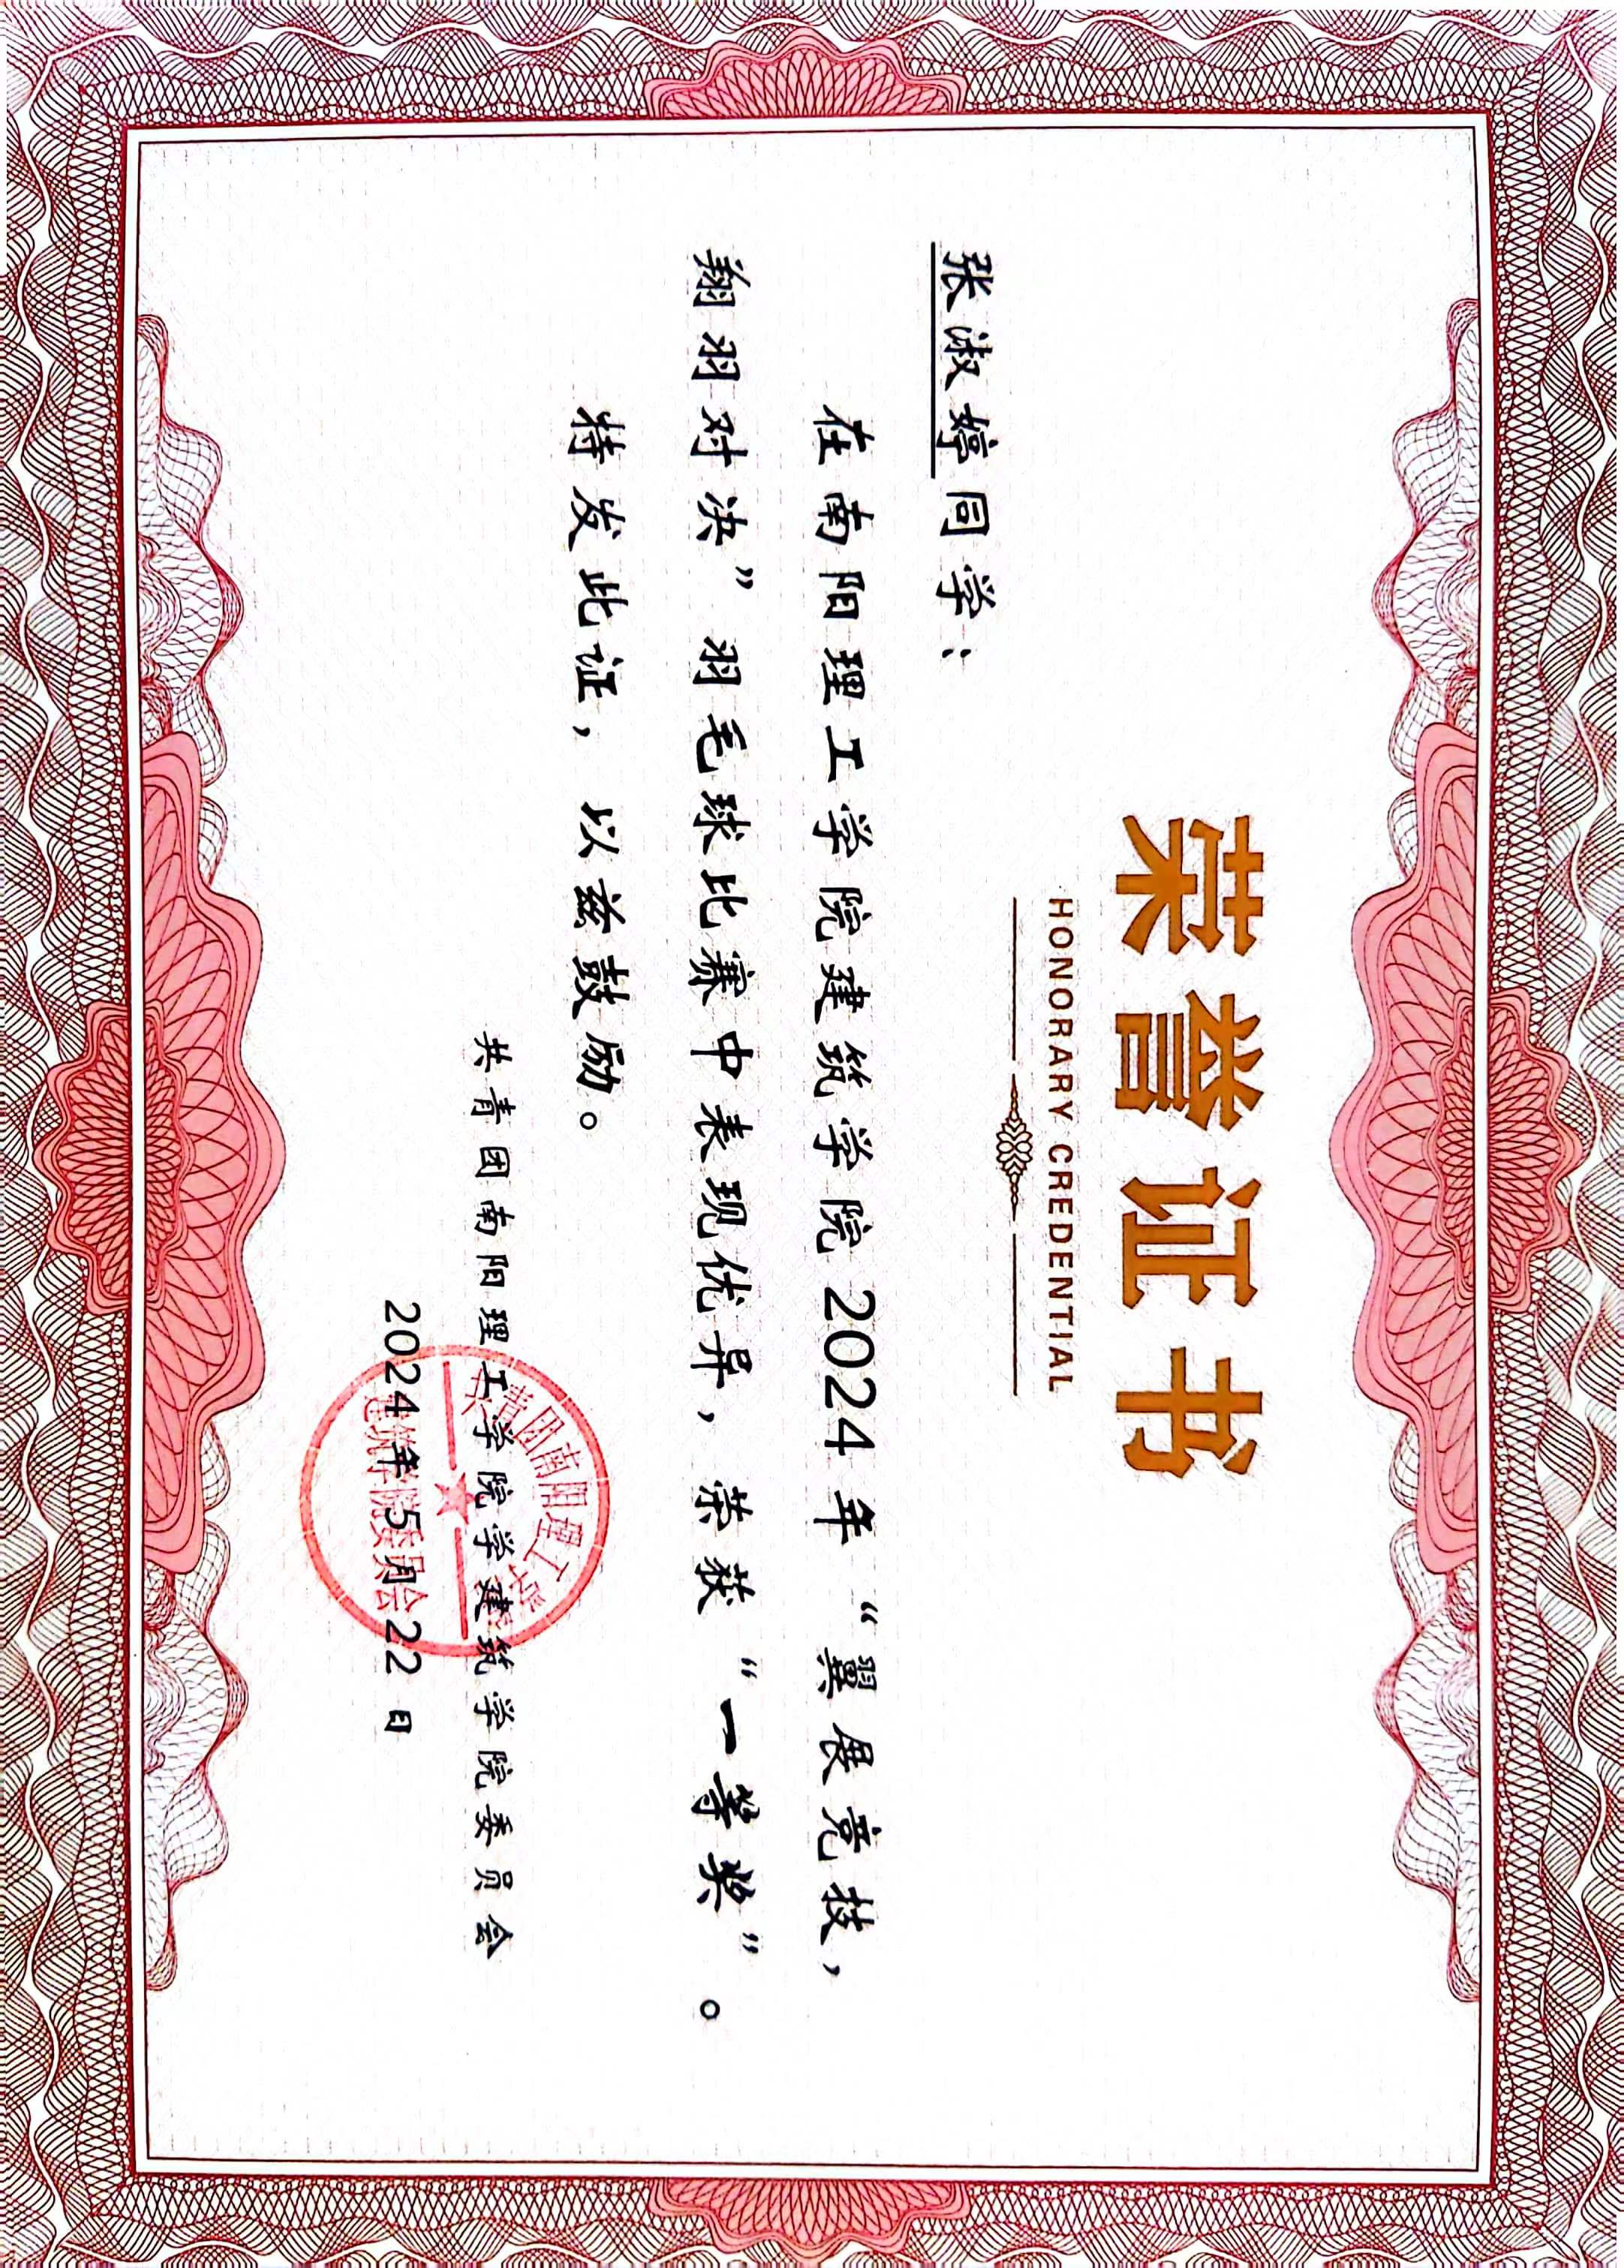 荣誉证书
HONORARY CREDENTIAL
张淑婷同学：
在南阳理工学院建筑学院2024年“翼展竞技，
翔羽对决”羽毛球比赛中表现优异，荣获“一等奖”。
特发此证，以兹鼓励。
共青团南阳理工学院学建筑学院委员会
2024年5月22日
共青团南阳理工学院
建筑学院委员会